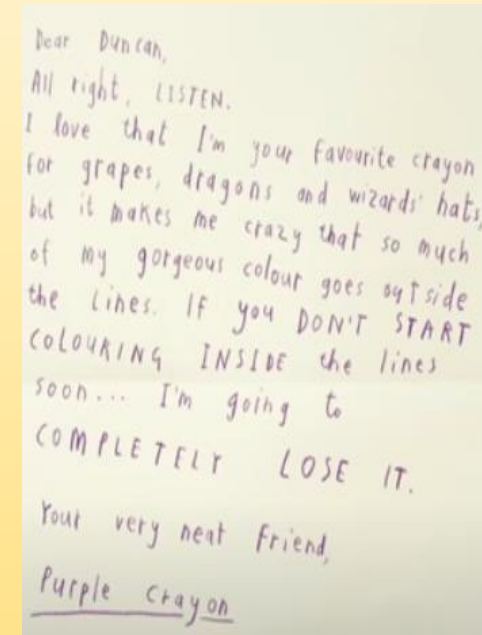 Dear Duncan,
All right, LISTEN.
I love that I'm your favourite crayon
for grapes, dragons and wizards' hats,
but it makes me crazy that so much
of my gorgeous colour goes outside
the lines. If you DON'T START
COLOURING INSIDE the lines
soon... I'm going to
COMPLETELY LOSE IT.
Your very neat friend,
Purple Crayon